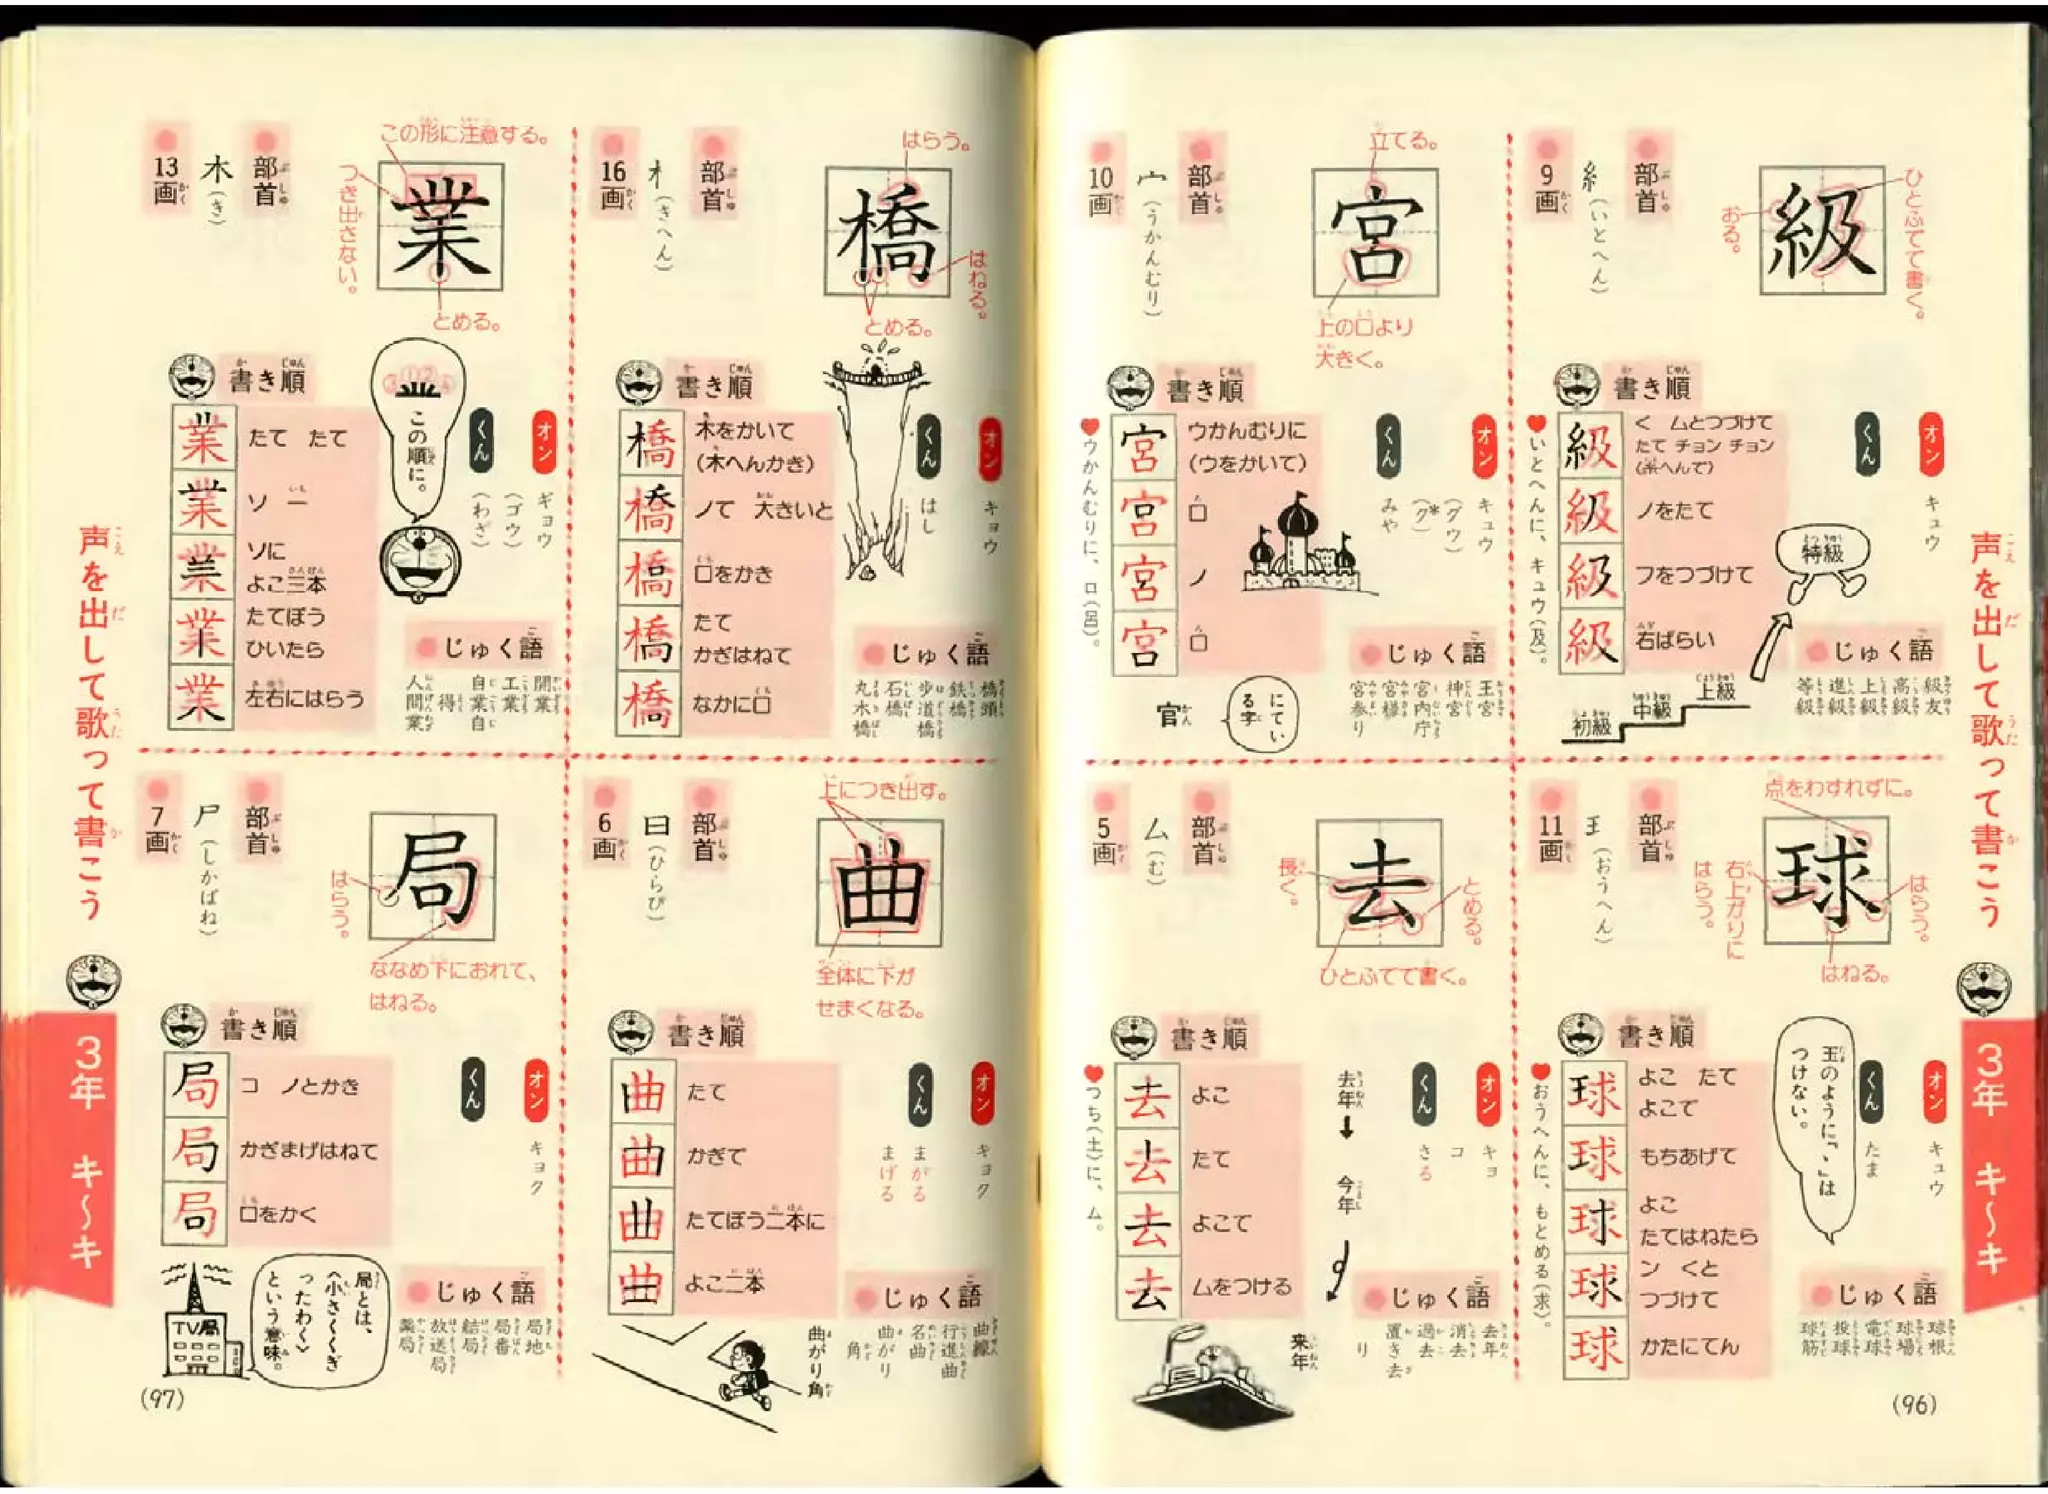 声を出して歌って書こう
3年 キ〜キ
級
ひとふでで書く。
おる。
部首
糸(いとへん)
9画
書き順
く ムとつづけて
たて チョン チョン
(糸へんで)
ノをたて
フをつづけて
右ばらい
♥いとへんに、キュウ(及)。
オン
キュウ
くん
特級
上級
中級
初級
じゅく語
級友
高級
上級
進級
等級
宮
立てる。
上の口より
大きく。
部首
宀(うかんむり)
10画
書き順
ウかんむりに
(ウをかいて)
口
ノ
口
♥ウかんむりに、口(呂)。
オン
キュウ
(グウ)
(*ク)
くん
みや
にてい
る字
官
じゅく語
王宮
神宮
宮内庁
宮様
宮参り
球
点をわすれずに。
右上がりに
はらう。
はらう。
はねる。
部首
王(おうへん)
11画
書き順
よこ たて
よこで
もちあげて
よこ
たてはねたら
ン くと
つづけて
かたにてん
♥おうへんに、もとめる(求)。
オン
キュウ
くん
たま
玉のように「、」は
つけない。
じゅく語
球根
球場
電球
投球
球筋
去
長く。
とめる。
ひとふでで書く。
部首
ム(む)
5画
書き順
よこ
たて
よこで
ムをつける
♥つち(土)に、ム。
オン
キョ
コ
くん
さる
去年
今年
来年
じゅく語
去年
消去
過去
置き去り
(96)
橋
はらう。
はねる。
とめる。
部首
木(きへん)
16画
書き順
木をかいて
(木へんかき)
ノで 大きいと
口をかき
たて
かぎはねて
なかに口
オン
キョウ
くん
はし
じゅく語
橋頭
鉄橋
歩道橋
石橋
丸木橋
業
この形に注意する。
つき出さない。
とめる。
部首
木(き)
13画
書き順
たて たて
ソ 一
ソに
よこ三本
たてぼう
ひいたら
左右にはらう
③①②④
この順に。
オン
ギョウ
(ゴウ)
くん
(わざ)
じゅく語
開業
工業
自業自得
人間業
曲
上につき出す。
全体に下が
せまくなる。
部首
曰(ひらび)
6画
書き順
たて
かぎで
たてぼう二本に
よこ二本
オン
キョク
くん
まがる
まげる
曲がり角
じゅく語
曲線
行進曲
名曲
曲がり角
局
はらう。
ななめ下におれて、
はねる。
部首
尸(しかばね)
7画
書き順
コ ノとかき
かぎまげはねて
口をかく
オン
キョク
くん
TV局
局とは、
〈小さくくぎ
ったわく〉
という意味。
じゅく語
局地
局番
結局
放送局
薬局
声を出して歌って書こう
3年 キ〜キ
(97)